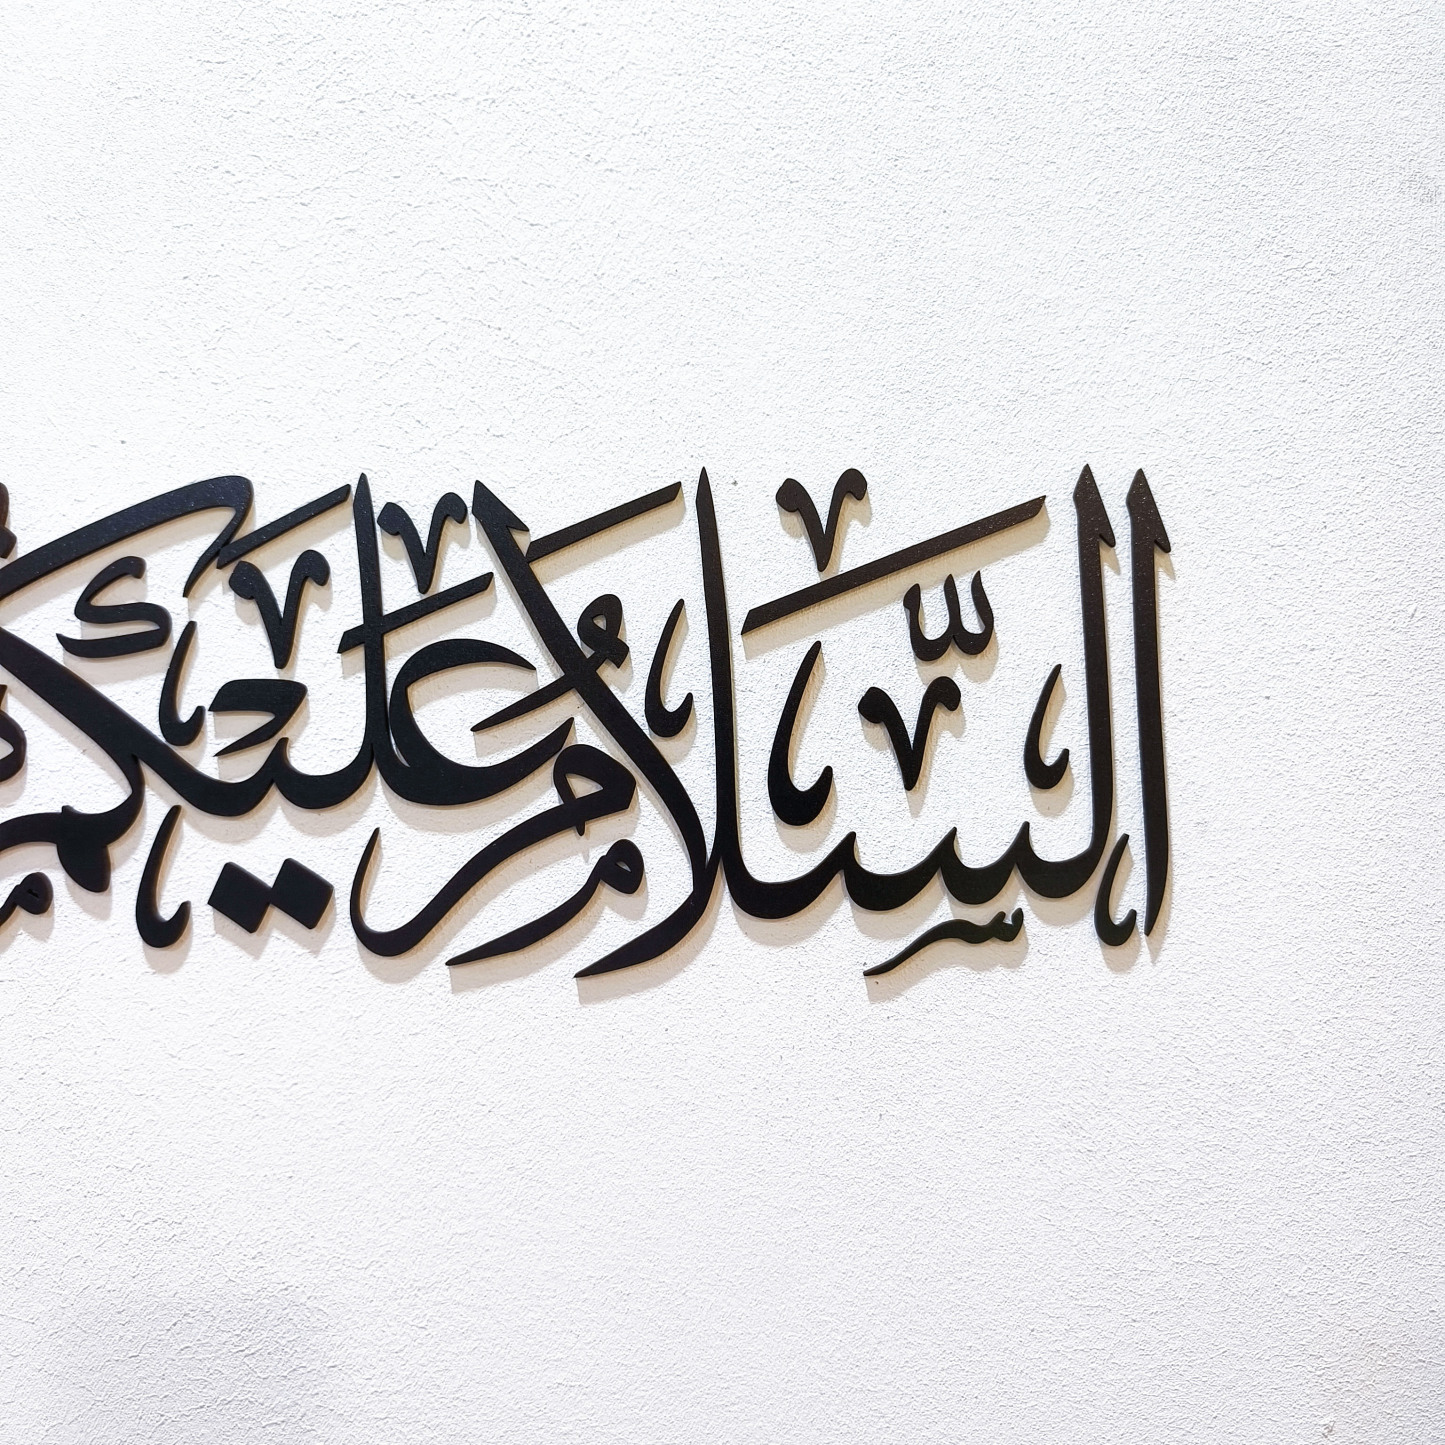 السَّلَامُ عَلَيْكُمْ